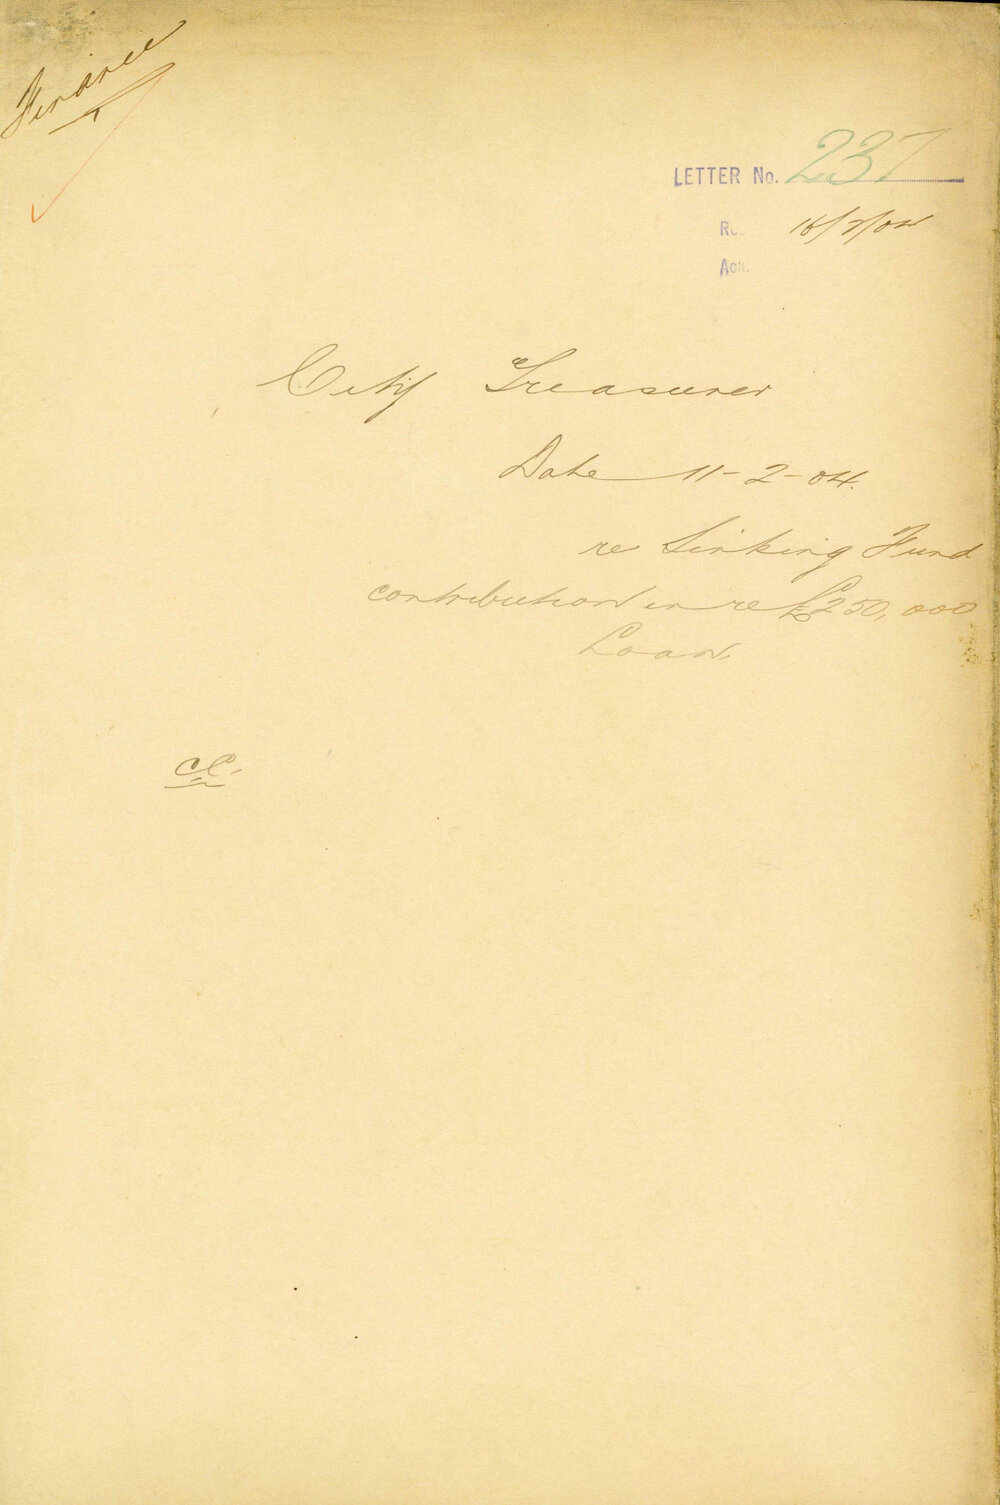 Finance
LETTER No. 237
Rec
Ack.
City Treasurer
Date 11-2-04.
re Sinking Fund
contribution in re £250,000
Loan.